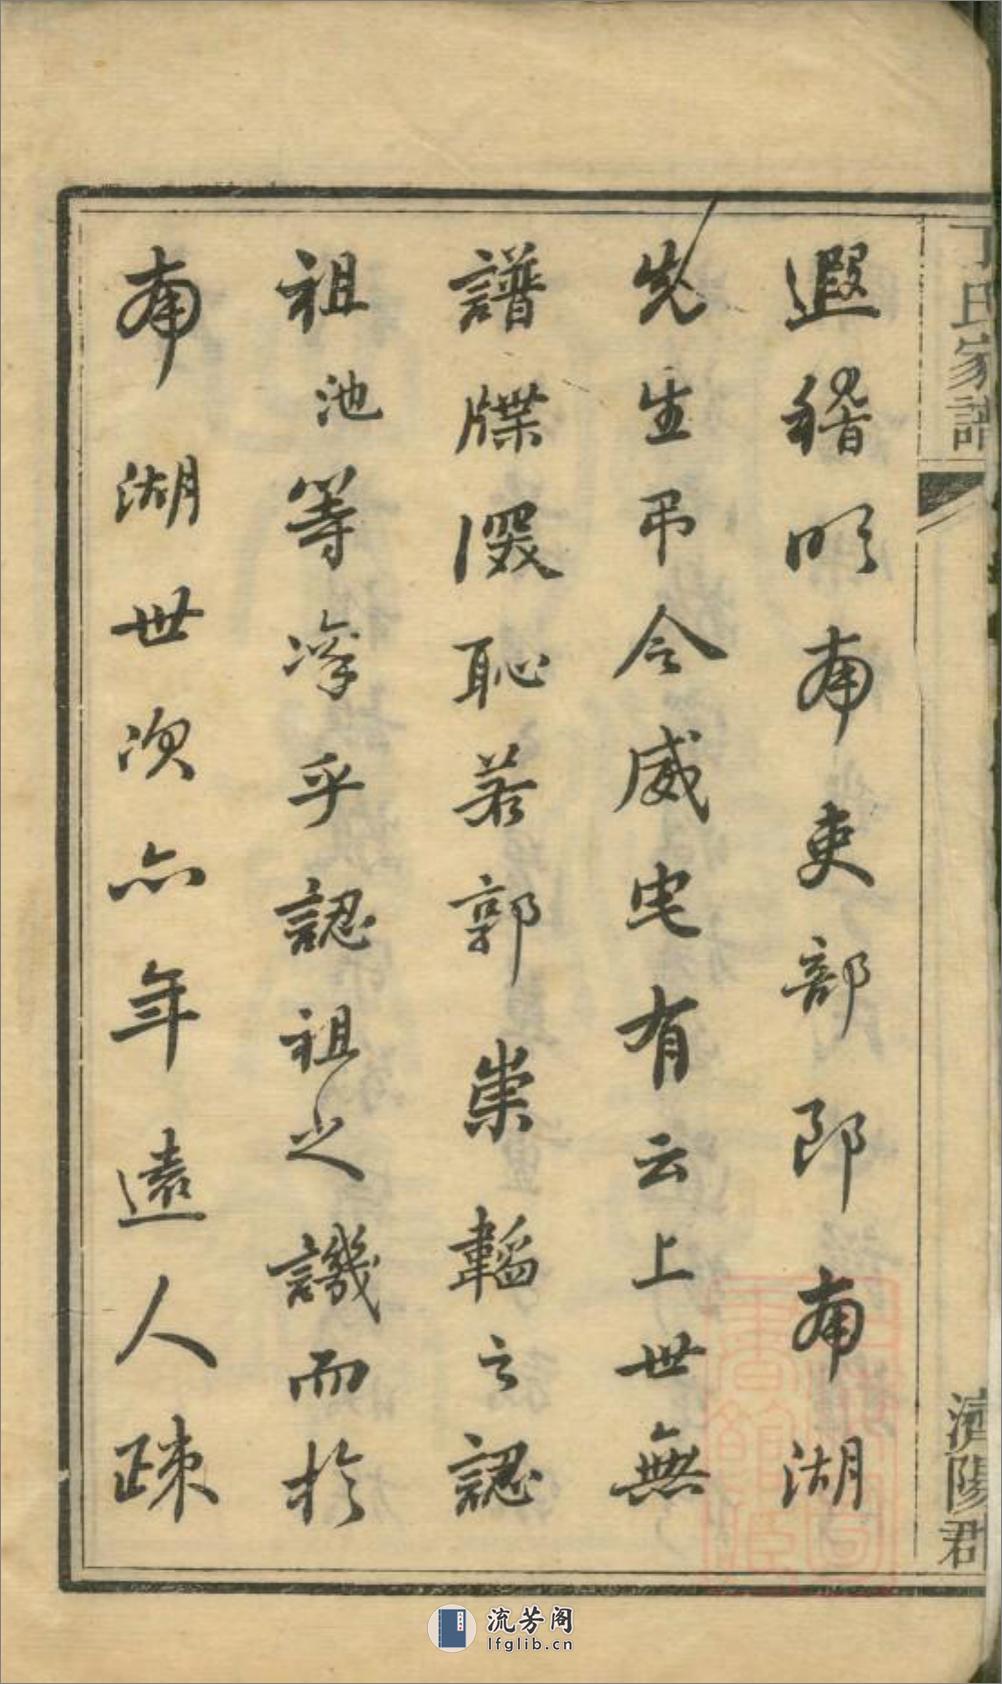 丁氏家譜
濟陽郡
遐稽明南吏部郎南湖
先生弔令威宅有云上世無
譜牒深恥若郭崇韜之認
祖池等乎認祖之譏而於
南湖世次亦年遠人疎
流芳阁
lfglib.cn